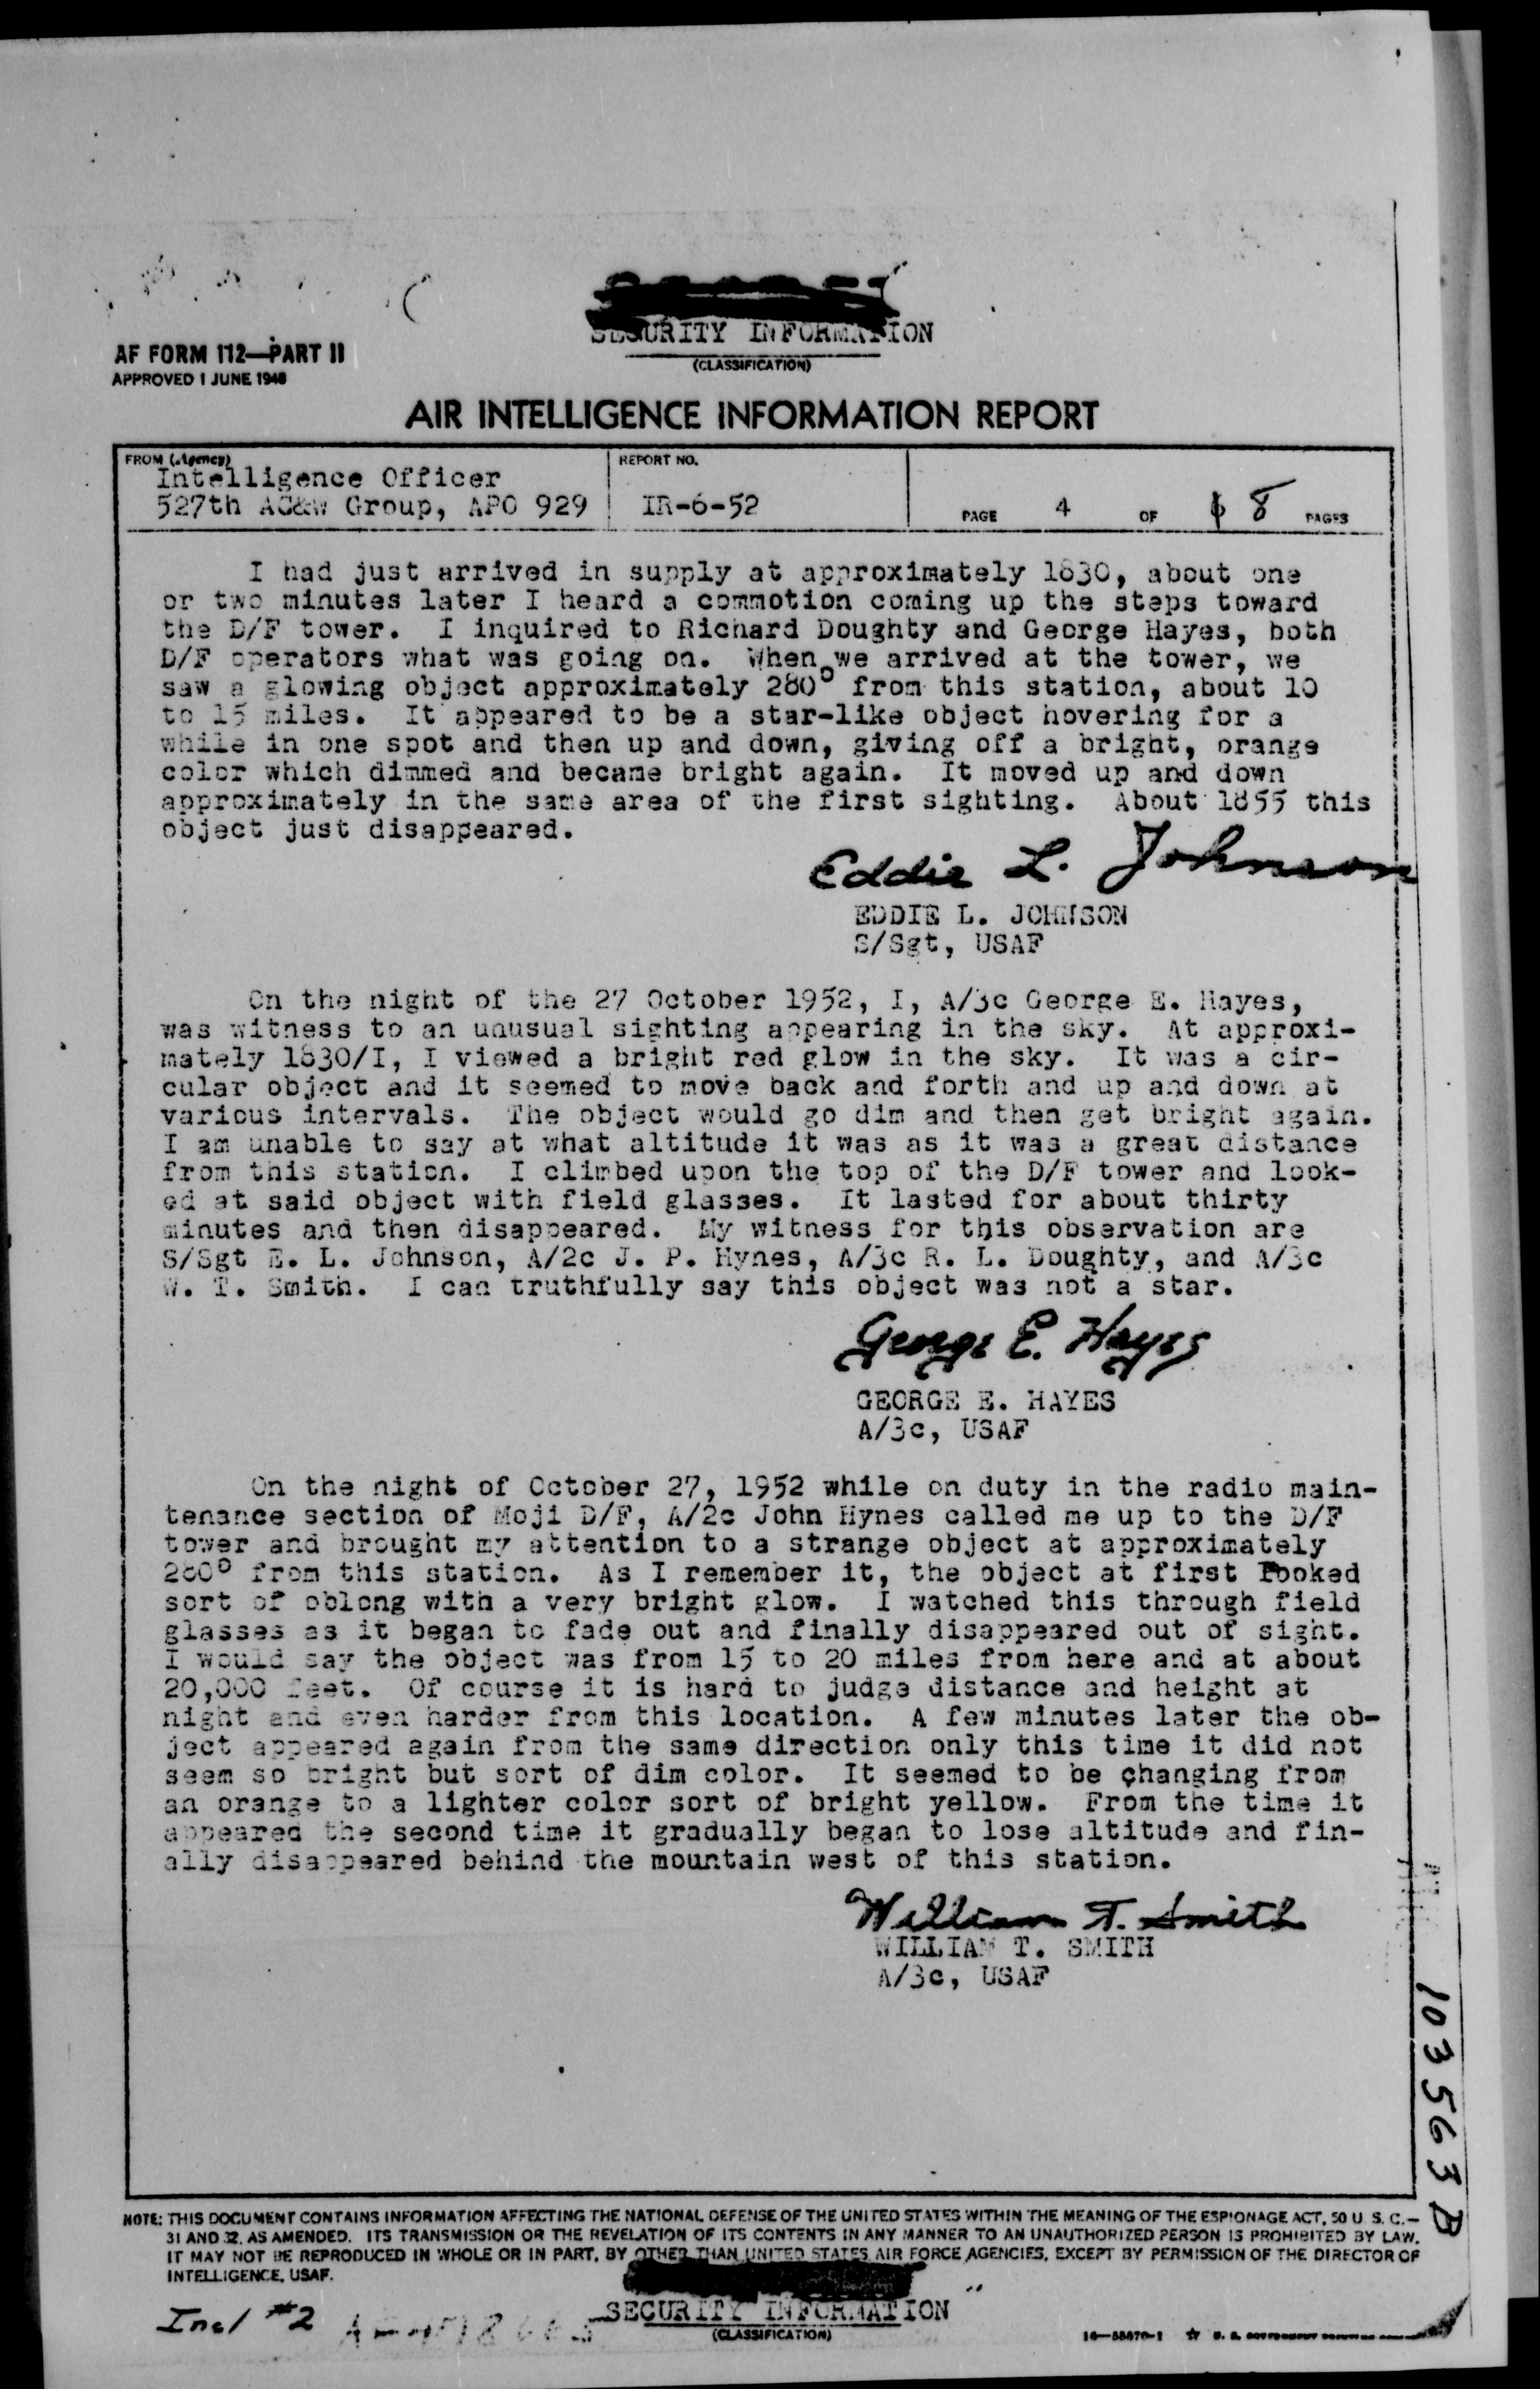 SECURITY INFORMATION
(CLASSIFICATION)
AF FORM 112—PART II
APPROVED 1 JUNE 1948
AIR INTELLIGENCE INFORMATION REPORT
FROM (Agency)
Intelligence Officer
527th AC&W Group, APO 929
REPORT NO.
IR-6-52
PAGE 4 OF 8 PAGES
I had just arrived in supply at approximately 1830, about one
or two minutes later I heard a commotion coming up the steps toward
the D/F tower. I inquired to Richard Doughty and George Hayes, both
D/F operators what was going on. When we arrived at the tower, we
saw a glowing object approximately 280° from this station, about 10
to 15 miles. It appeared to be a star-like object hovering for a
while in one spot and then up and down, giving off a bright, orange
color which dimmed and became bright again. It moved up and down
approximately in the same area of the first sighting. About 1855 this
object just disappeared.
Eddie L. Johnson
EDDIE L. JOHNSON
S/Sgt, USAF
On the night of the 27 October 1952, I, A/3c George E. Hayes,
was witness to an unusual sighting appearing in the sky. At approxi-
mately 1830/I, I viewed a bright red glow in the sky. It was a cir-
cular object and it seemed to move back and forth and up and down at
various intervals. The object would go dim and then get bright again.
I am unable to say at what altitude it was as it was a great distance
from this station. I climbed upon the top of the D/F tower and look-
ed at said object with field glasses. It lasted for about thirty
minutes and then disappeared. My witness for this observation are
S/Sgt E. L. Johnson, A/2c J. P. Hynes, A/3c R. L. Doughty, and A/3c
W. T. Smith. I can truthfully say this object was not a star.
George E. Hayes
GEORGE E. HAYES
A/3c, USAF
On the night of October 27, 1952 while on duty in the radio main-
tenance section of Moji D/F, A/2c John Hynes called me up to the D/F
tower and brought my attention to a strange object at approximately
280° from this station. As I remember it, the object at first looked
sort of oblong with a very bright glow. I watched this through field
glasses as it began to fade out and finally disappeared out of sight.
I would say the object was from 15 to 20 miles from here and at about
20,000 feet. Of course it is hard to judge distance and height at
night and even harder from this location. A few minutes later the ob-
ject appeared again from the same direction only this time it did not
seem so bright but sort of dim color. It seemed to be changing from
an orange to a lighter color sort of bright yellow. From the time it
appeared the second time it gradually began to lose altitude and fin-
ally disappeared behind the mountain west of this station.
William T. Smith
WILLIAM T. SMITH
A/3c, USAF
103563B
NOTE: THIS DOCUMENT CONTAINS INFORMATION AFFECTING THE NATIONAL DEFENSE OF THE UNITED STATES WITHIN THE MEANING OF THE ESPIONAGE ACT, 50 U. S. C.—
31 AND 32, AS AMENDED. ITS TRANSMISSION OR THE REVELATION OF ITS CONTENTS IN ANY MANNER TO AN UNAUTHORIZED PERSON IS PROHIBITED BY LAW.
IT MAY NOT BE REPRODUCED IN WHOLE OR IN PART, BY OTHER THAN UNITED STATES AIR FORCE AGENCIES, EXCEPT BY PERMISSION OF THE DIRECTOR OF
INTELLIGENCE, USAF.
Incl #2
SECURITY INFORMATION
(CLASSIFICATION)
16—55570-1 ☆ U. S. GOVERNMENT